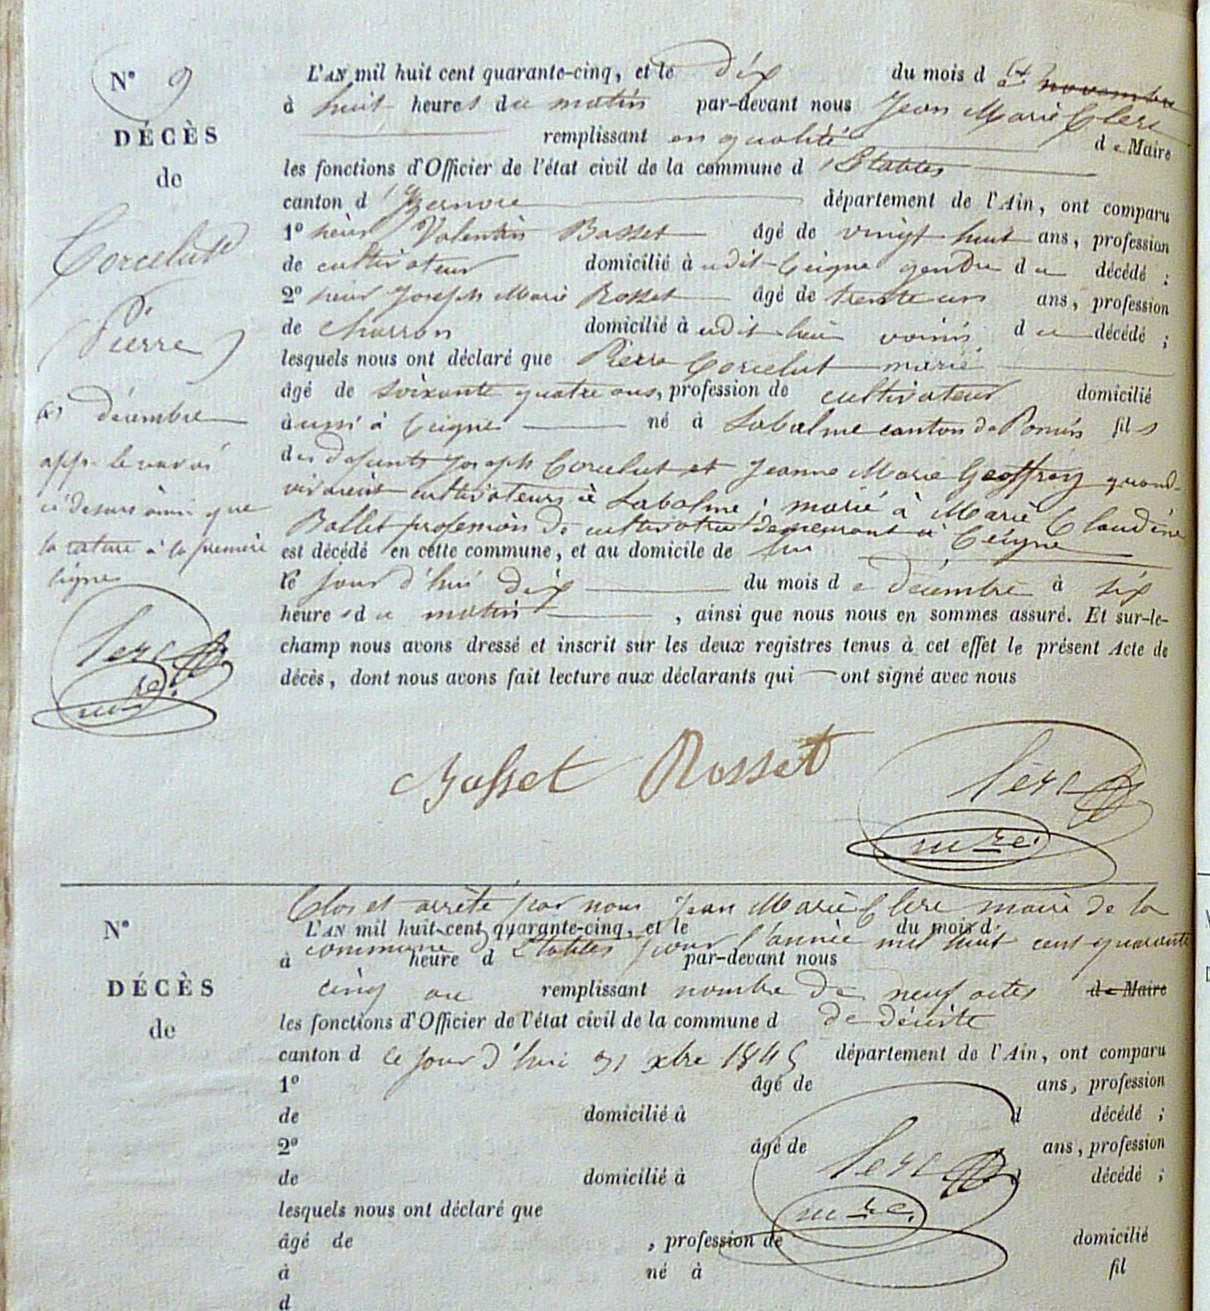 N° 9
DÉCÈS
de
Corcelut
Pierre
(1) décembre
app. le renvoi
ci dessus ainsi que
la rature à la première
ligne
Clerc
mre.
L'AN mil huit cent quarante-cinq, et le dix du mois d (1) novembre
à huit heures du matin par-devant nous Jean Marie Clerc
remplissant en qualité de Maire
les fonctions d'Officier de l'état civil de la commune d'Etables
canton d'Izernore département de l'Ain, ont comparu
1° sieur Valentin Bosset âgé de vingt huit ans, profession
de cultivateur domicilié à udit Ceigne gendre du décédé ;
2° sieur Joseph Marie Rosset âgé de trente un ans, profession
de charron domicilié à udit lieu voisin du décédé ;
lesquels nous ont déclaré que Pierre Corcelut marié
âgé de soixante quatre ans, profession de cultivateur domicilié
aussi à Ceigne né à Labalme canton de Poncin fils
des défunts Joseph Corcelut et Jeanne Marie Geoffray quand
vivaient cultivateurs à Labalme ; marié à Marie Claudine
Ballet profession de cultivatrice demeurant à Ceigne
est décédé en cette commune, et au domicile de lui
le jour d'hui dix du mois de décembre à six
heures du matin, ainsi que nous nous en sommes assuré. Et sur-le-
champ nous avons dressé et inscrit sur les deux registres tenus à cet effet le présent Acte de
décès, dont nous avons fait lecture aux déclarants qui ont signé avec nous
Bosset Rosset Clerc
mre.
N°
DÉCÈS
de
Clos et arrêté par nous Jean Marie Clerc maire de la
L'AN mil huit cent quarante-cinq, et le du mois d
commune d'Etables pour l'année mil huit cent quarante
à heure d par-devant nous
cinq au remplissant nombre de neuf actes de Maire
les fonctions d'Officier de l'état civil de la commune d de décès
canton d ce jour d'hui 31 xbre 1845 département de l'Ain, ont comparu
1° âgé de ans, profession
de domicilié à d décédé ;
2° âgé de ans, profession
de domicilié à décédé ;
Clerc
mre.
lesquels nous ont déclaré que
âgé de , profession de domicilié
à né à fil
d